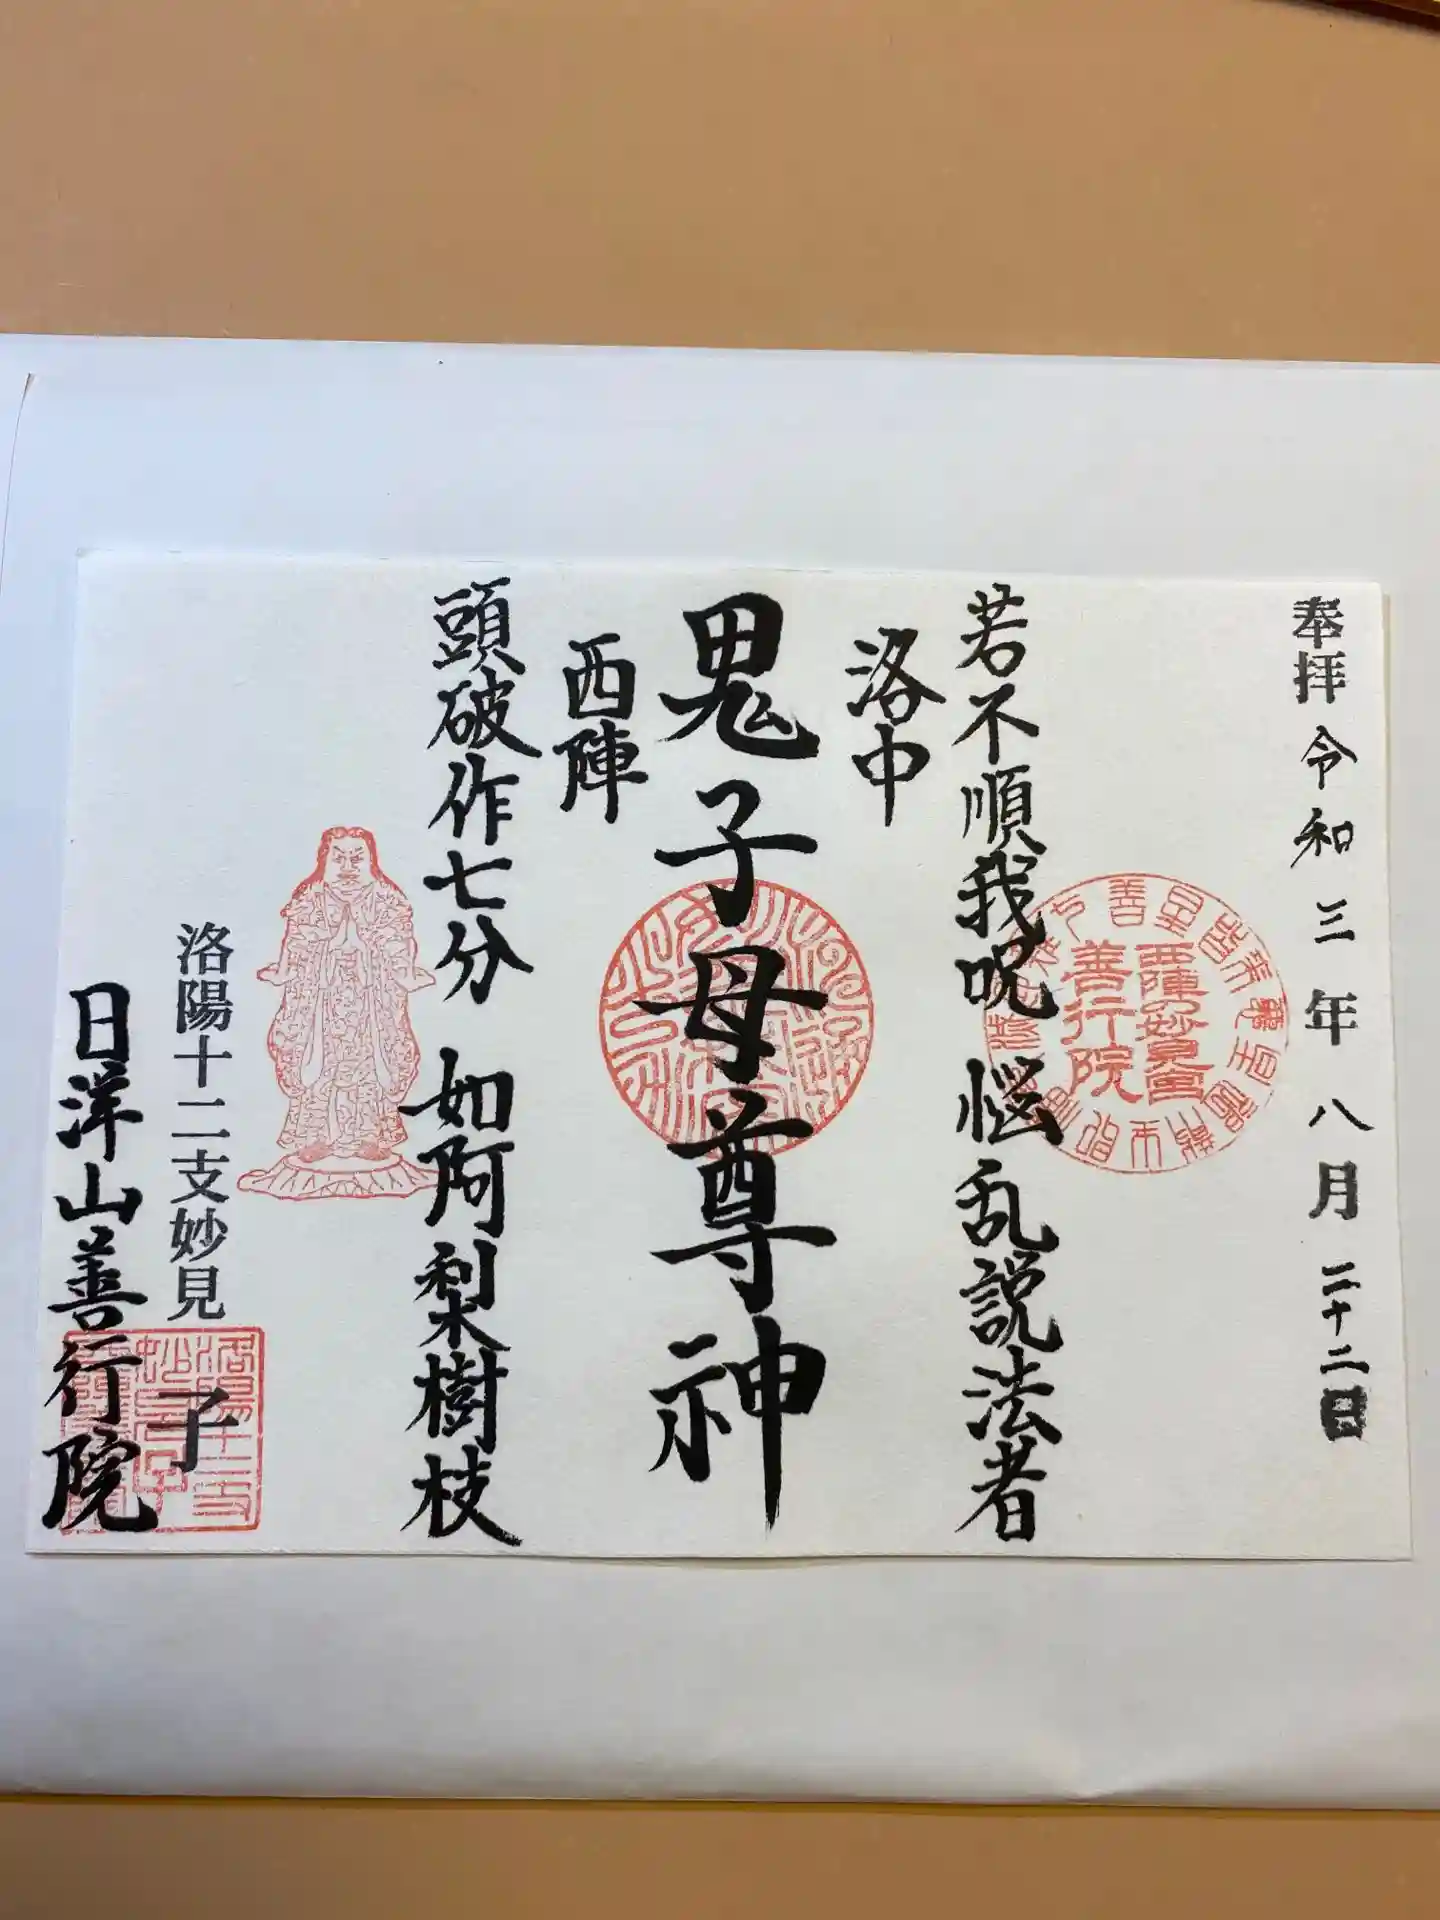 奉拝 令和三年八月二十二日
若不順我呪 悩乱説法者
洛中
鬼子母尊神
西陣
頭破作七分 如阿梨樹枝
洛陽十二支妙見
子
日洋山善行院
西陣の妙見宮
善行院